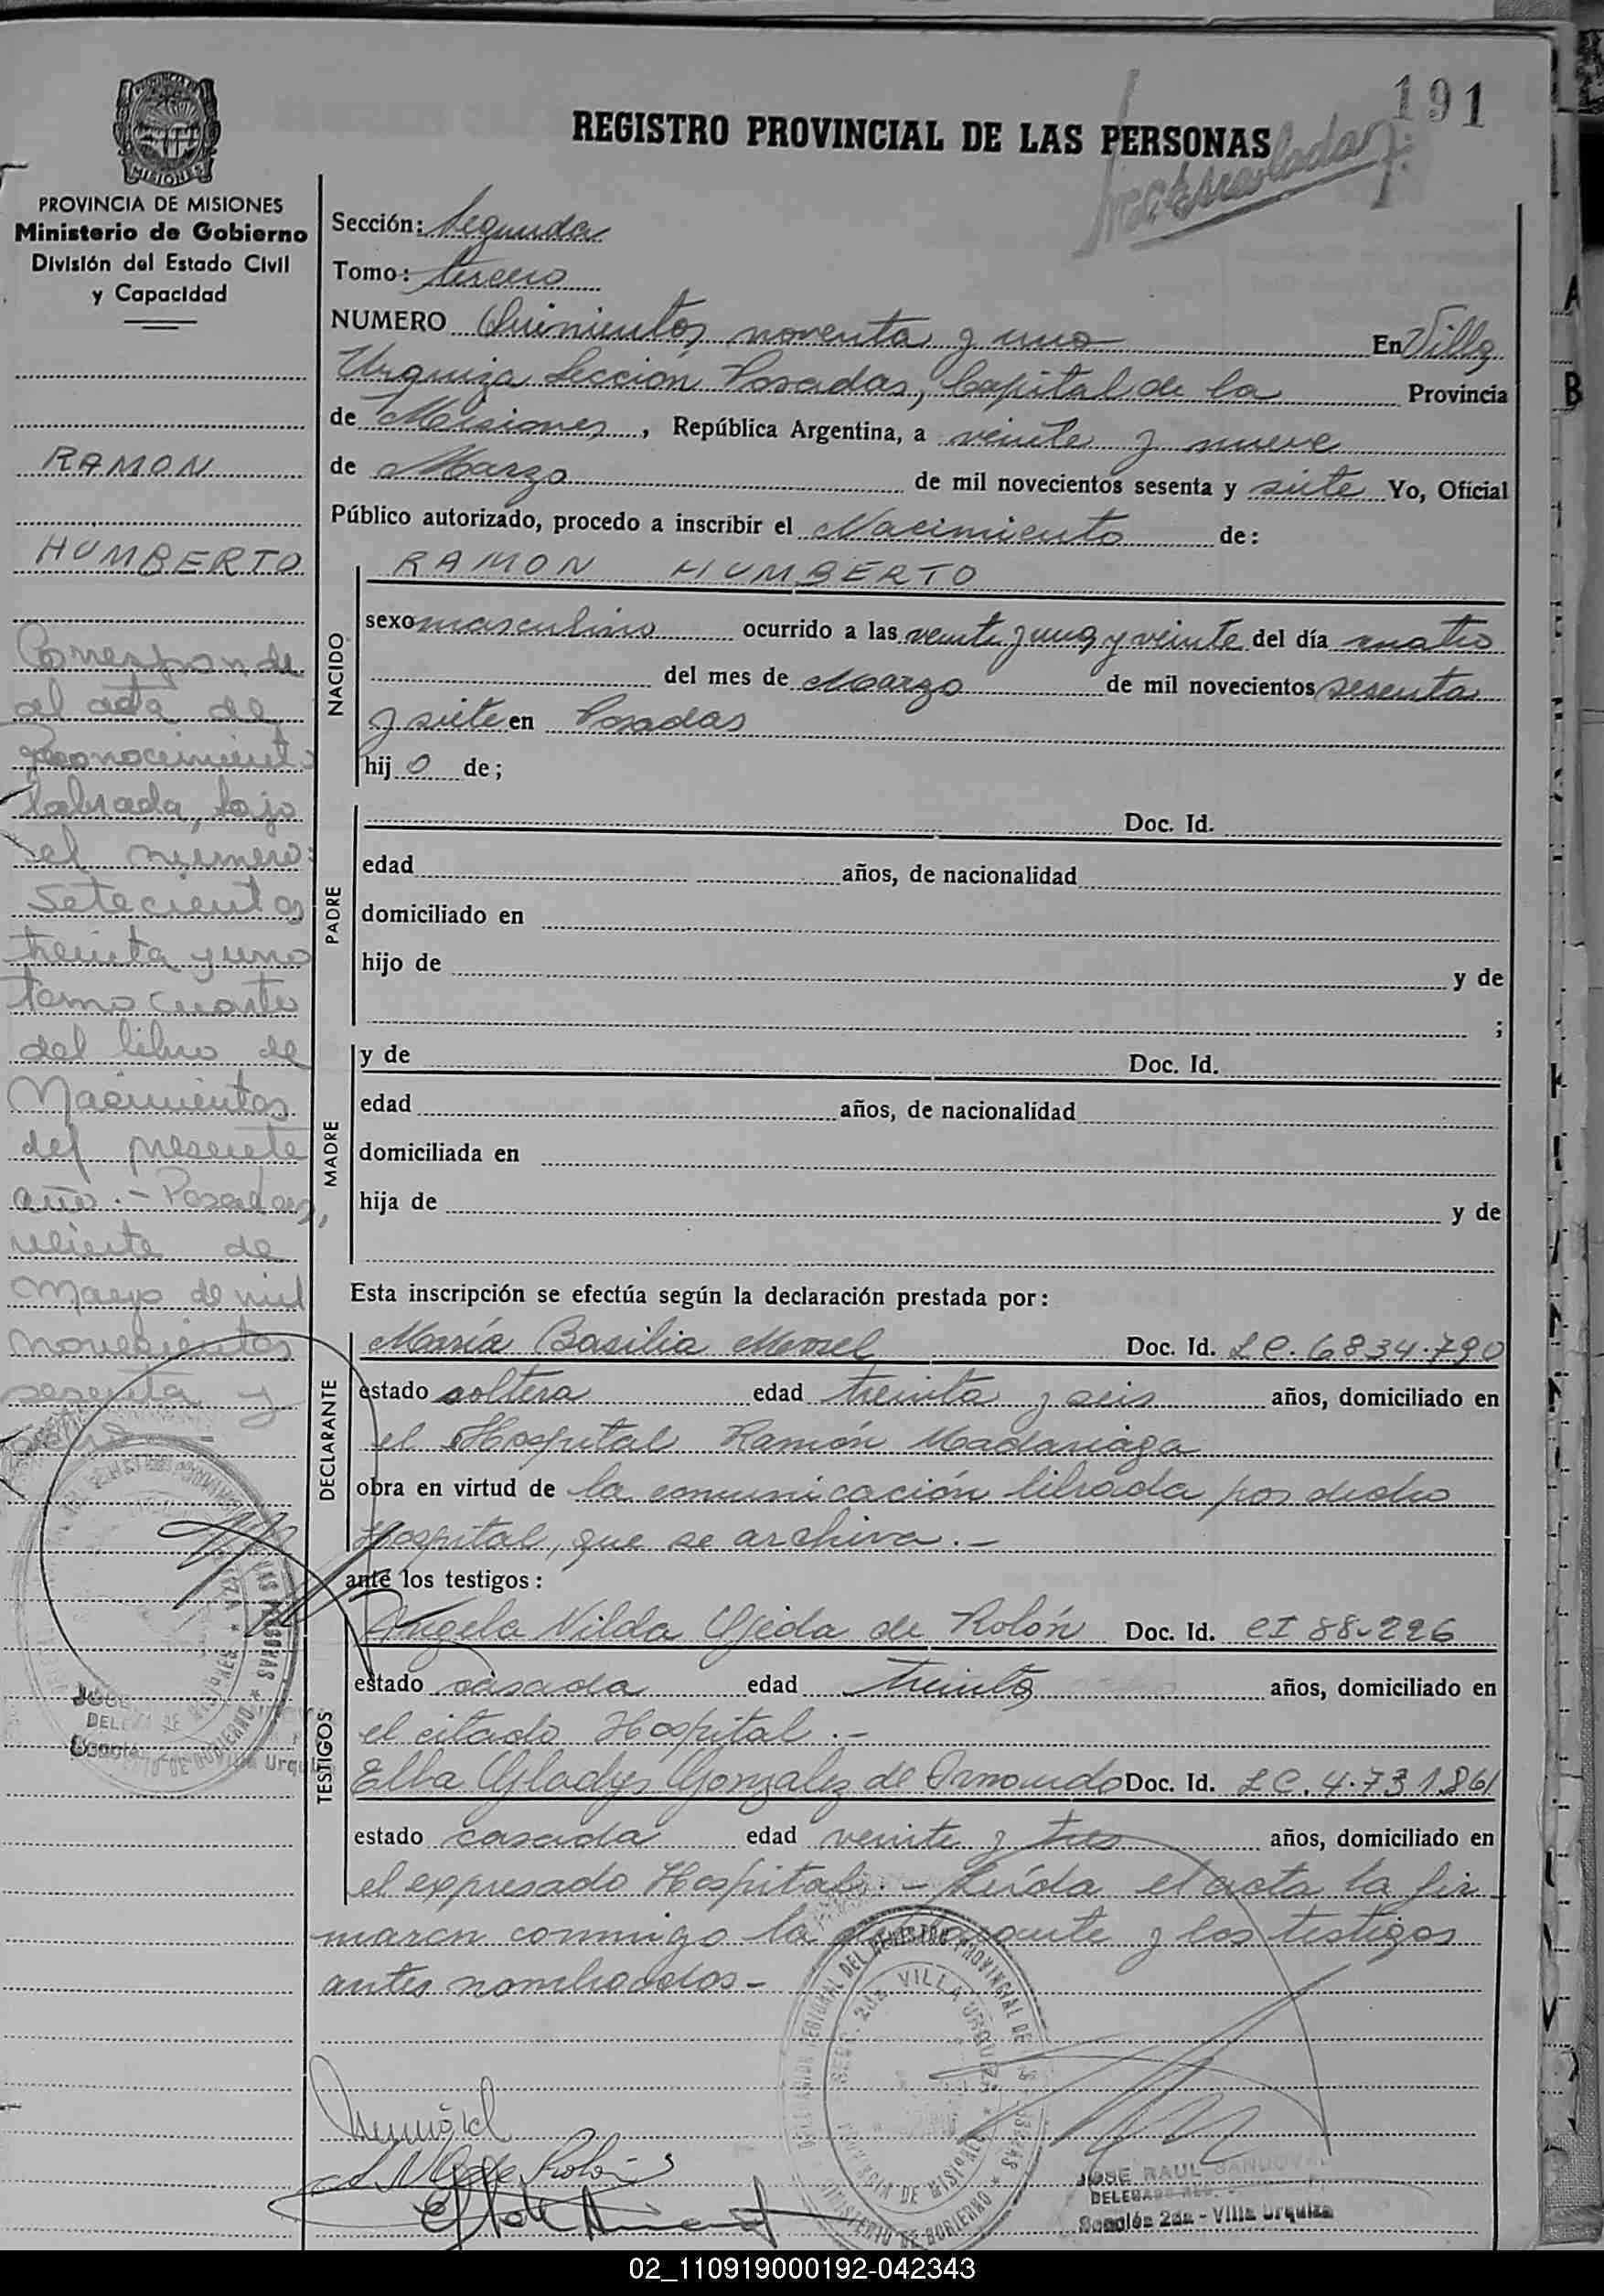 191
REGISTRO PROVINCIAL DE LAS PERSONAS
PROVINCIA DE MISIONES
Ministerio de Gobierno
División del Estado Civil
y Capacidad
RAMON
HUMBERTO
Corresponde
al acta de
Reconocimiento
labrada, bajo
el número:
Setecientos
treinta y uno
tomo cuarto
del libro de
Nacimientos
del presente
año.- Posadas,
veinte de
Mayo de mil
novecientos
sesenta y
Sección: Segunda
Tomo: tercero
NUMERO Quinientos noventa y uno En Villa
Urquiza Sección Posadas, Capital de la Provincia
de Misiones, República Argentina, a veinte y nueve
de Marzo de mil novecientos sesenta y siete Yo, Oficial
Público autorizado, procedo a inscribir el Nacimiento de:
NACIDO
RAMON HUMBERTO
sexo masculino ocurrido a las veinte y una y veinte del día cuatro
del mes de Marzo de mil novecientos sesenta
y siete en Posadas
hij o de;
PADRE
Doc. Id.
edad años, de nacionalidad
domiciliado en
hijo de y de
;
MADRE
y de Doc. Id.
edad años, de nacionalidad
domiciliada en
hija de y de
Esta inscripción se efectúa según la declaración prestada por:
DECLARANTE
María Basilia Morel Doc. Id. LC. 6834.790
estado soltera edad treinta y seis años, domiciliado en
el Hospital Ramón Madariaga
obra en virtud de la comunicación librada por dicho
Hospital, que se archiva.-
ante los testigos:
TESTIGOS
Angela Nilda Ojeda de Rolón Doc. Id. CI 88.226
estado casada edad treinta años, domiciliado en
el citado Hospital.-
Elba Gladys Gonzalez de Doc. Id. LC. 4.731.861
estado casada edad veinte y tres años, domiciliado en
el expresado Hospital.- Leída el acta la fir
maron conmigo la declarante y los testigos
antes nombrados-
DELEGACION REGIONAL DEL REGISTRO PROVINCIAL DE LAS PERSONAS
SECC. 2da VILLA URQUIZA
PROVINCIA DE MISIONES
MINISTERIO DE GOBIERNO
JOSE RAUL SANDOVAL
Sección 2da - Villa Urquiza
02_110919000192-042343